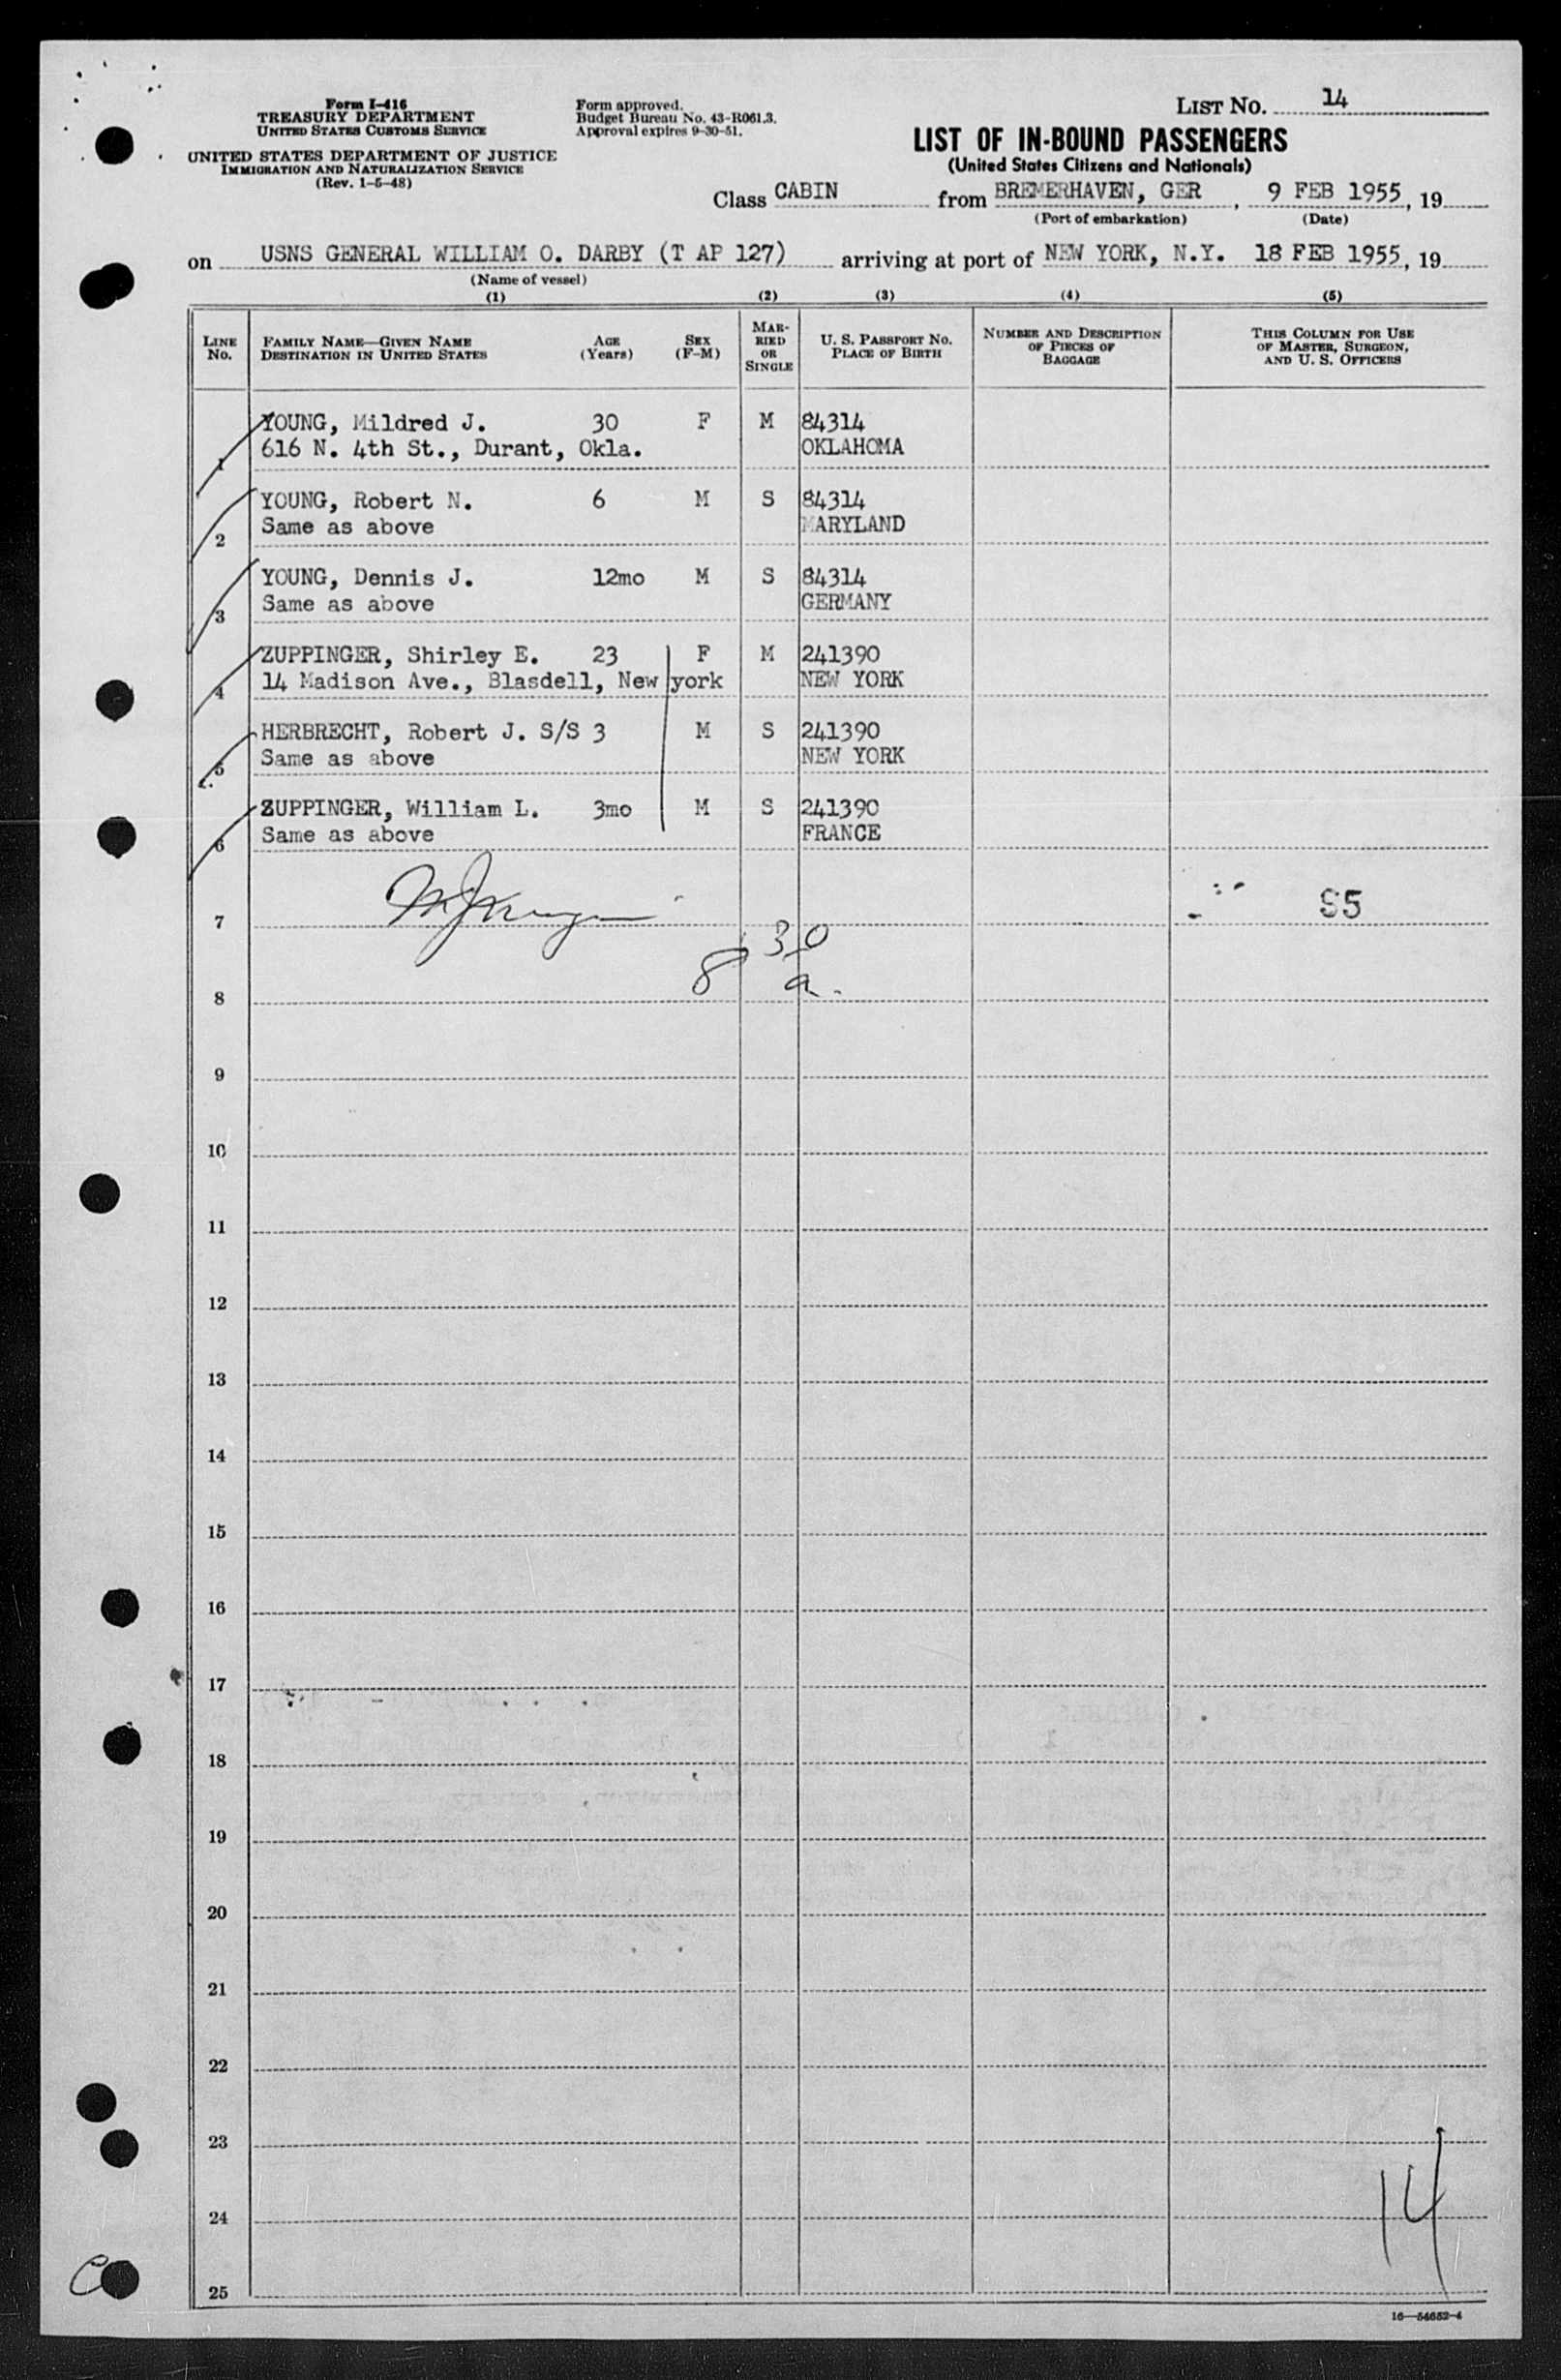 Form I-416
TREASURY DEPARTMENT
UNITED STATES CUSTOMS SERVICE
UNITED STATES DEPARTMENT OF JUSTICE
IMMIGRATION AND NATURALIZATION SERVICE
(Rev. 1-5-48)
Form approved.
Budget Bureau No. 43-R061.3.
Approval expires 9-30-51.
LIST NO. 14
LIST OF IN-BOUND PASSENGERS
(United States Citizens and Nationals)
Class CABIN from BREMERHAVEN, GER, 9 FEB 1955, 19
(Port of embarkation) (Date)
on USNS GENERAL WILLIAM O. DARBY (T AP 127) arriving at port of NEW YORK, N.Y. 18 FEB 1955, 19
(Name of vessel)
(1) (2) (3) (4) (5)
LINE No. FAMILY NAME—GIVEN NAME DESTINATION IN UNITED STATES AGE (Years) SEX (F-M) MARRIED OR SINGLE U. S. PASSPORT NO. PLACE OF BIRTH NUMBER AND DESCRIPTION OF PIECES OF BAGGAGE THIS COLUMN FOR USE OF MASTER, SURGEON, AND U. S. OFFICERS
YOUNG, Mildred J. 30 F M 84314
1 616 N. 4th St., Durant, Okla. OKLAHOMA
YOUNG, Robert N. 6 M S 84314
2 Same as above MARYLAND
YOUNG, Dennis J. 12mo M S 84314
3 Same as above GERMANY
ZUPPINGER, Shirley E. 23 F M 241390
4 14 Madison Ave., Blasdell, New york NEW YORK
HERBRECHT, Robert J. S/S 3 M S 241390
5 Same as above NEW YORK
ZUPPINGER, William L. 3mo M S 241390
6 Same as above FRANCE
7 95
8 30 a.
8
9
10
11
12
13
14
15
16
17
18
19
20
21
22
23
24
14
25
16—54652-4